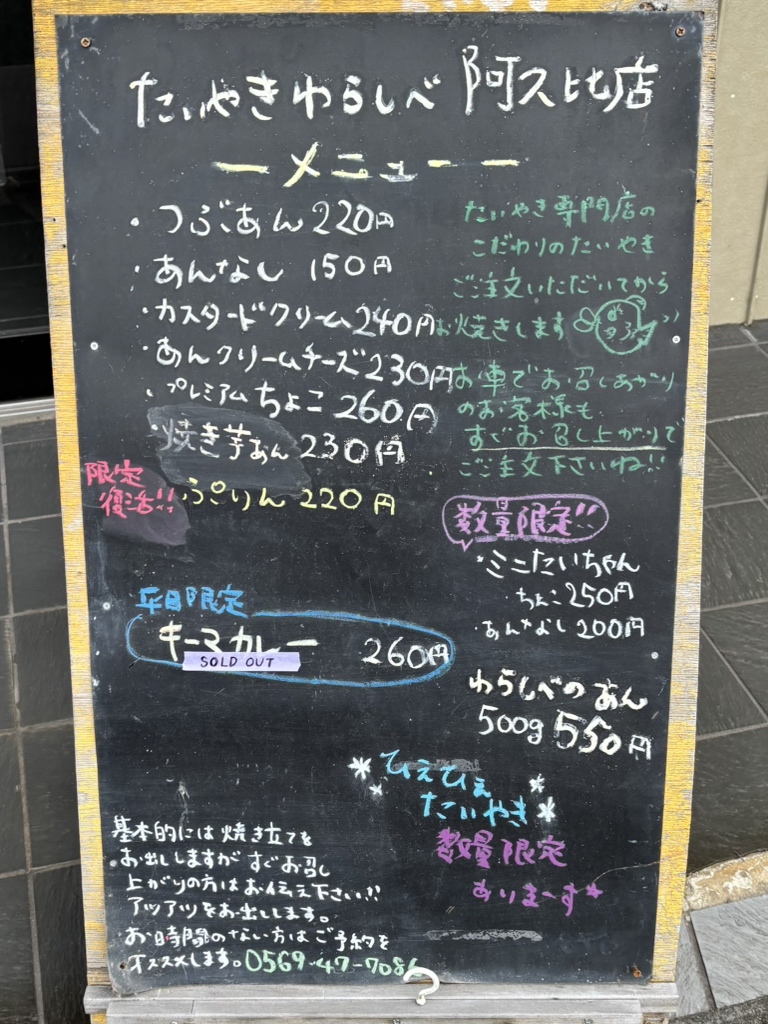 たいやきわらしべ 阿久比店
ーメニューー
・つぶあん 220円
・あんなし 150円
・カスタードクリーム 240円
・あんクリームチーズ 230円
・プレミアムちょこ 260円
・焼き芋あん 230円
限定
復活!!
・ぷりん 220円
平日限定
キーマカレー 260円
SOLD OUT
基本的には焼き立てを
お出ししますがすぐお召し
上がりの方はお伝え下さい!!
アツアツをお出しします。
お時間のない方はご予約を
オススメします。0569-47-7086
たいやき専門店の
こだわりのたいやき
ご注文いただいてから
お焼きします
お車でお召しあがり
のお客様も
すぐお召し上がりで
ご注文下さいね!!
数量限定!!
・ミニたいちゃん
ちょこ 250円
・あんなし 200円
わらしべのあん
500g 550円
ひえひえ
たいやき
数量限定
ありまーす*